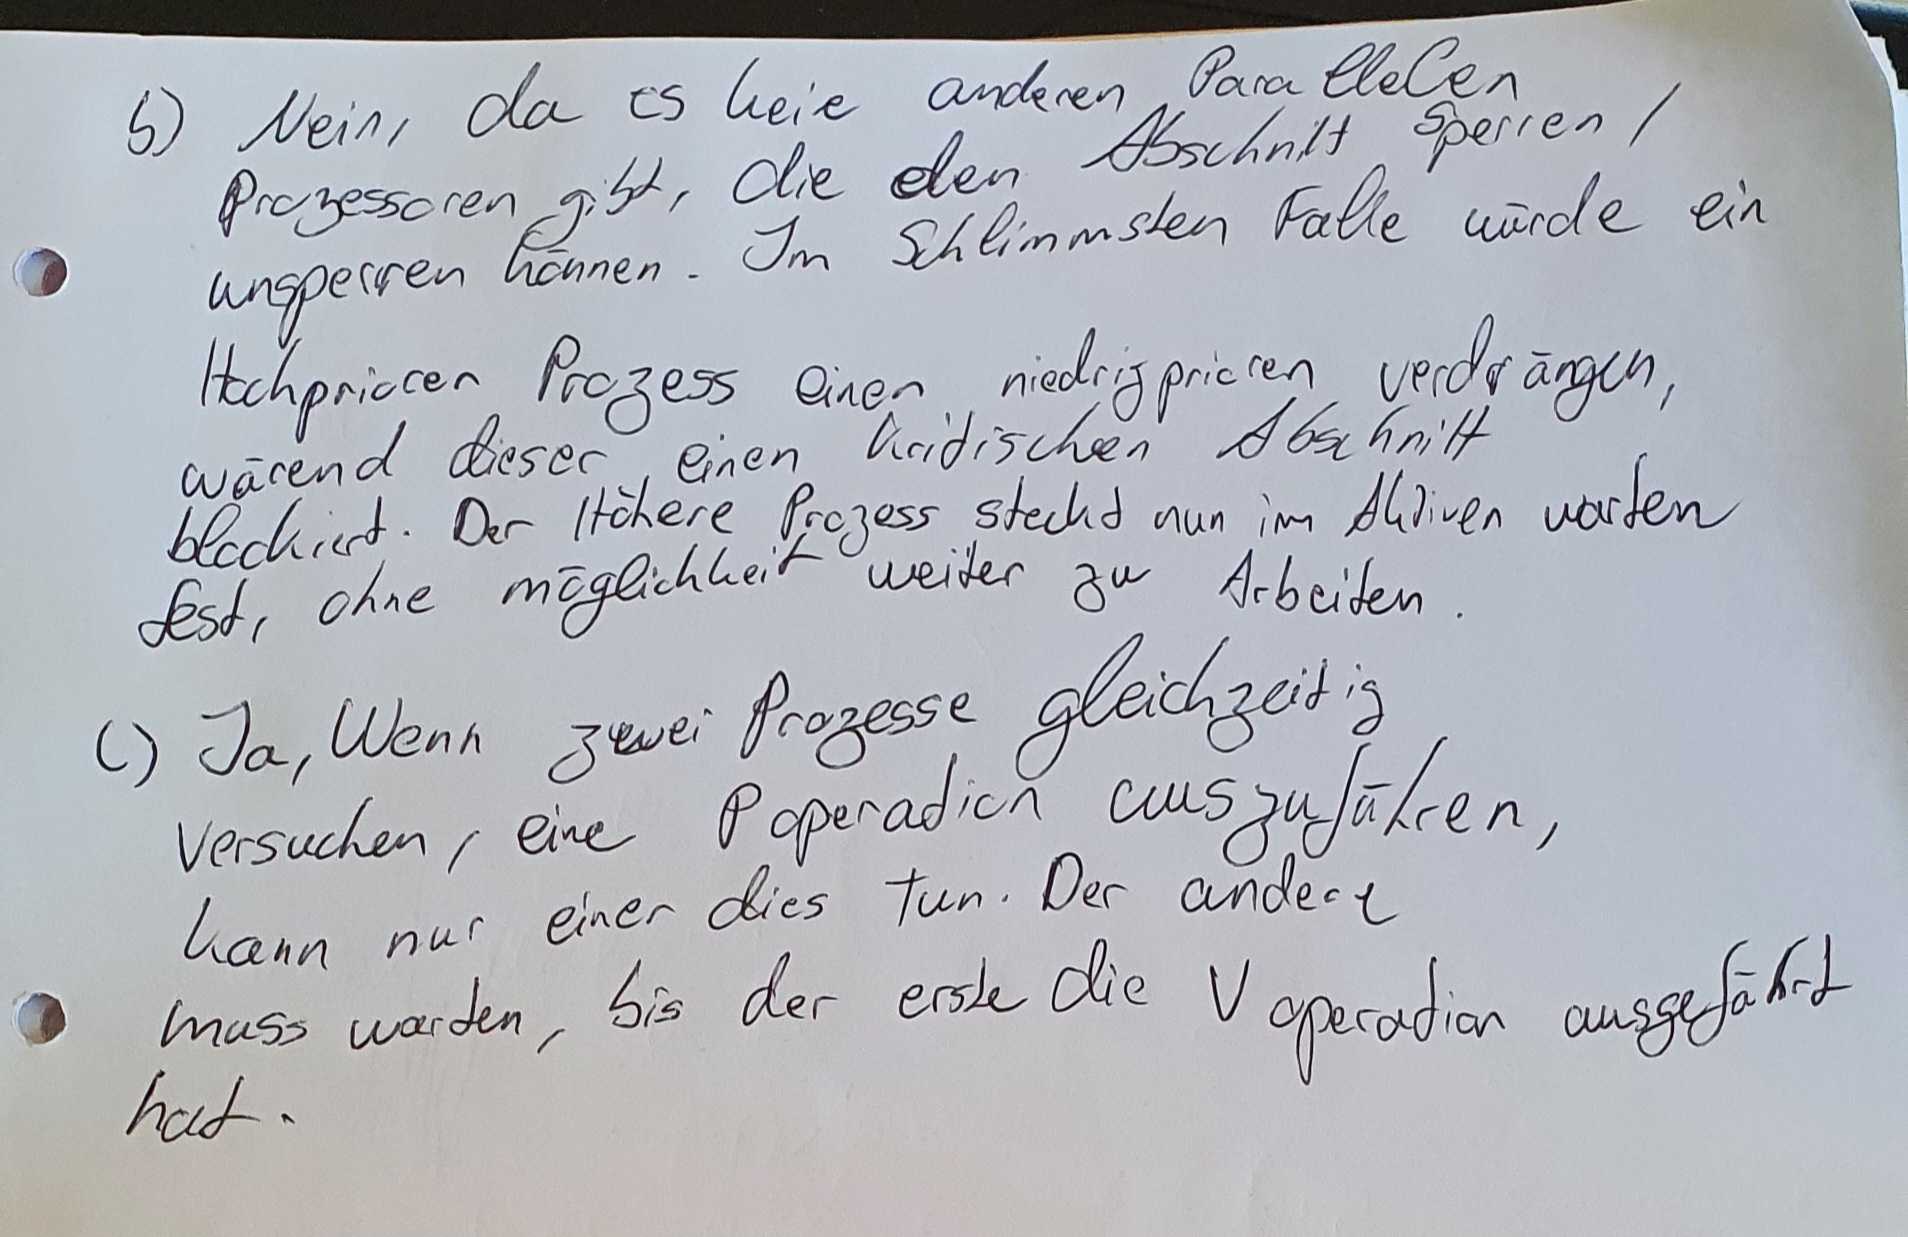 b) Nein, da es keie anderen Parallelen
Prozessoren gibt, die den Abschnitt Sperren /
unsperren können. Im Schlimmsten Falle würde ein
Hochprioren Prozess einen niedrigprioren verdrängen,
wärend dieser einen kritischen Abschnitt
blockiert. Der Höhere Prozess steckt nun im Aktiven warten
fest, ohne möglichkeit weiter zu Arbeiten.
C) Ja, Wenn zwei Prozesse gleichzeitig
versuchen, eine P operation auszuführen,
kann nur einer dies tun. Der andere
muss warten, bis der erste die V operation ausgeführt
hat.